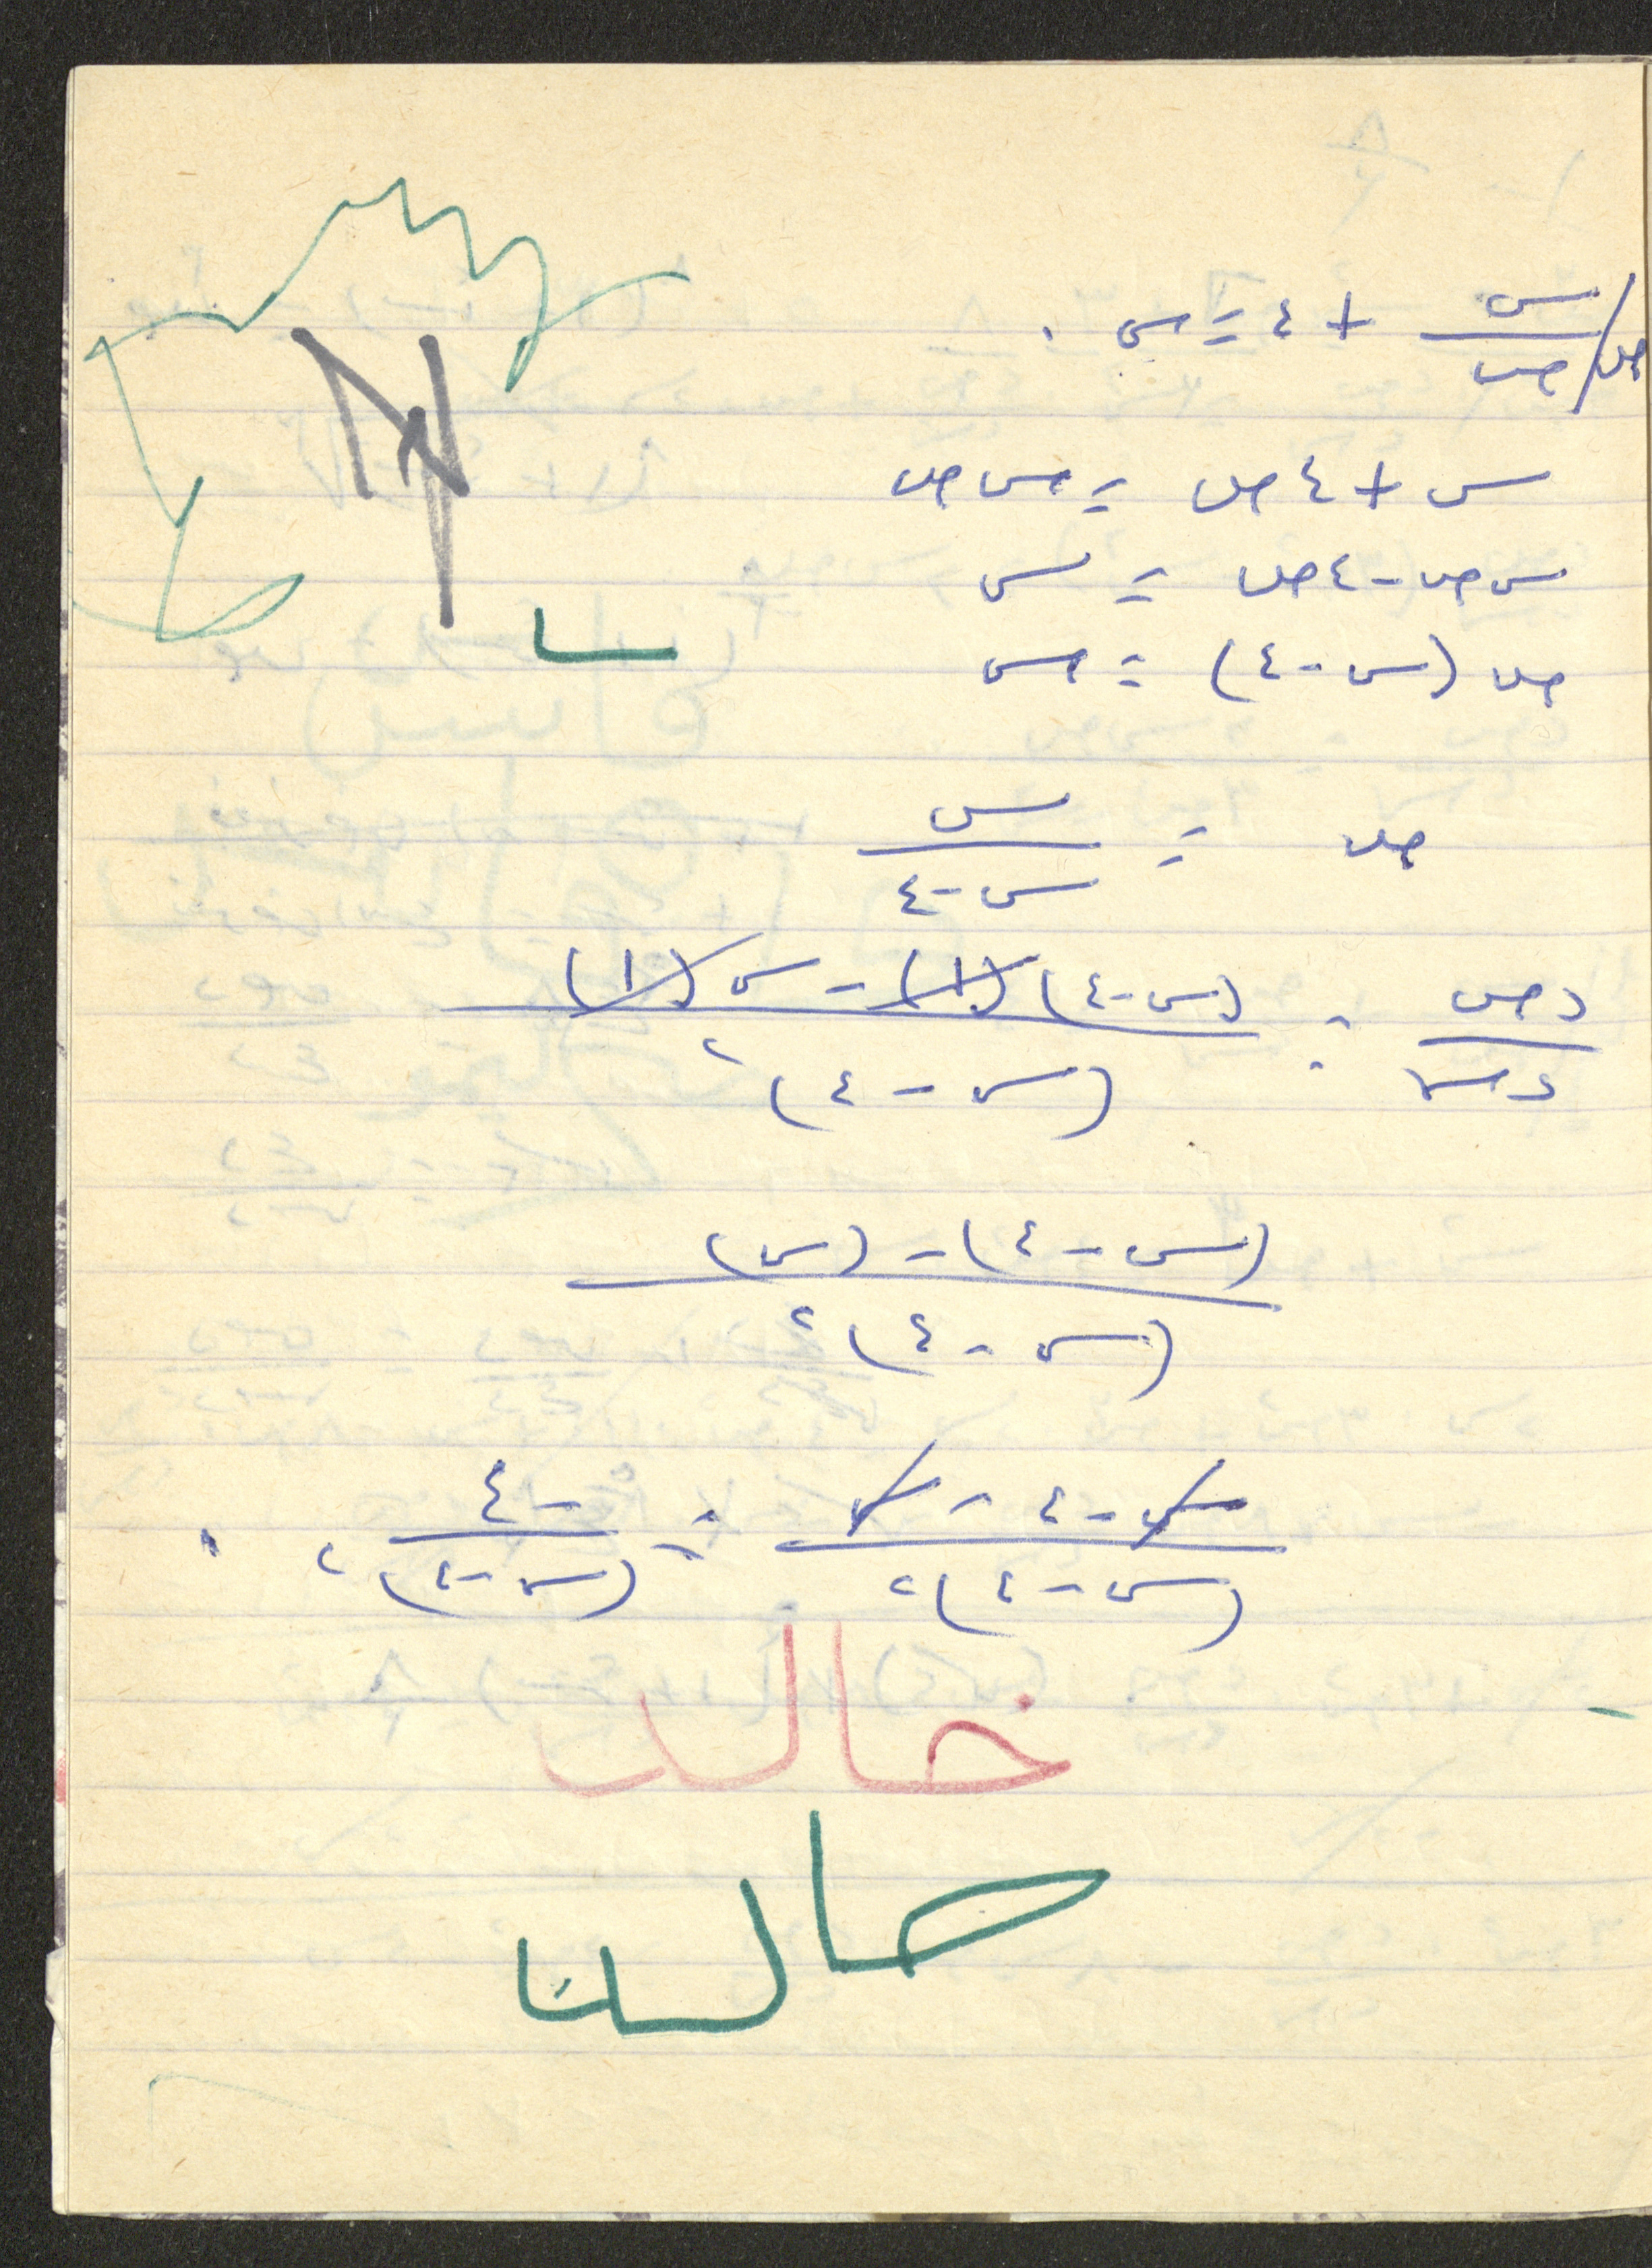 ص/ س/ص + ٤ = س .
س + ٤ ص = س ص
س ص - ٤ ص = س
ص (س - ٤) = س
ص = س/(س - ٤)
د ص/د س = ((س - ٤)(١) - س(١))/(س - ٤)٢
((س - ٤) - (س))/(س - ٤)٢
(س - ٤ - س)/(س - ٤)٢ = -٤/(س - ٤)٢ .
خالد